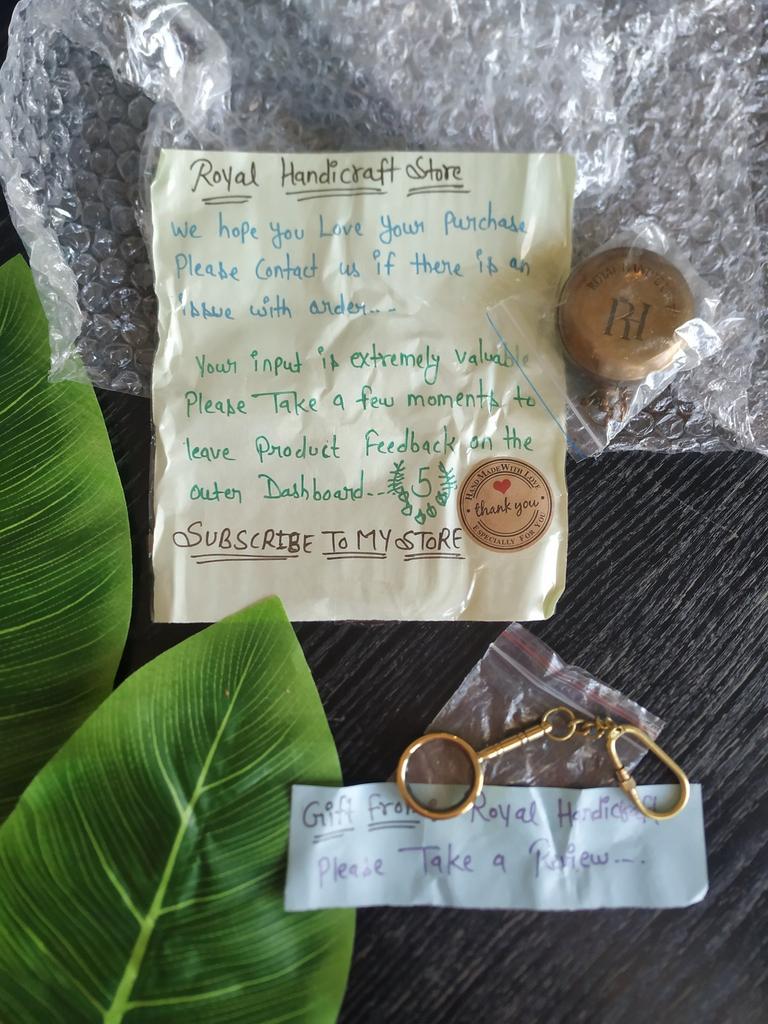 Royal Handicraft Store
We hope you Love Your Purchase
Please Contact us if there is an
issue with order...
Your input is extremely valuable
Please Take a few moments to
leave Product Feedback on the
outer Dashboard.. 5
SUBSCRIBE TO MY STORE
HAND MADE WITH LOVE
thank you
ESPECIALLY FOR YOU
RH
Gift From Royal Handicraft
Please Take a Review...